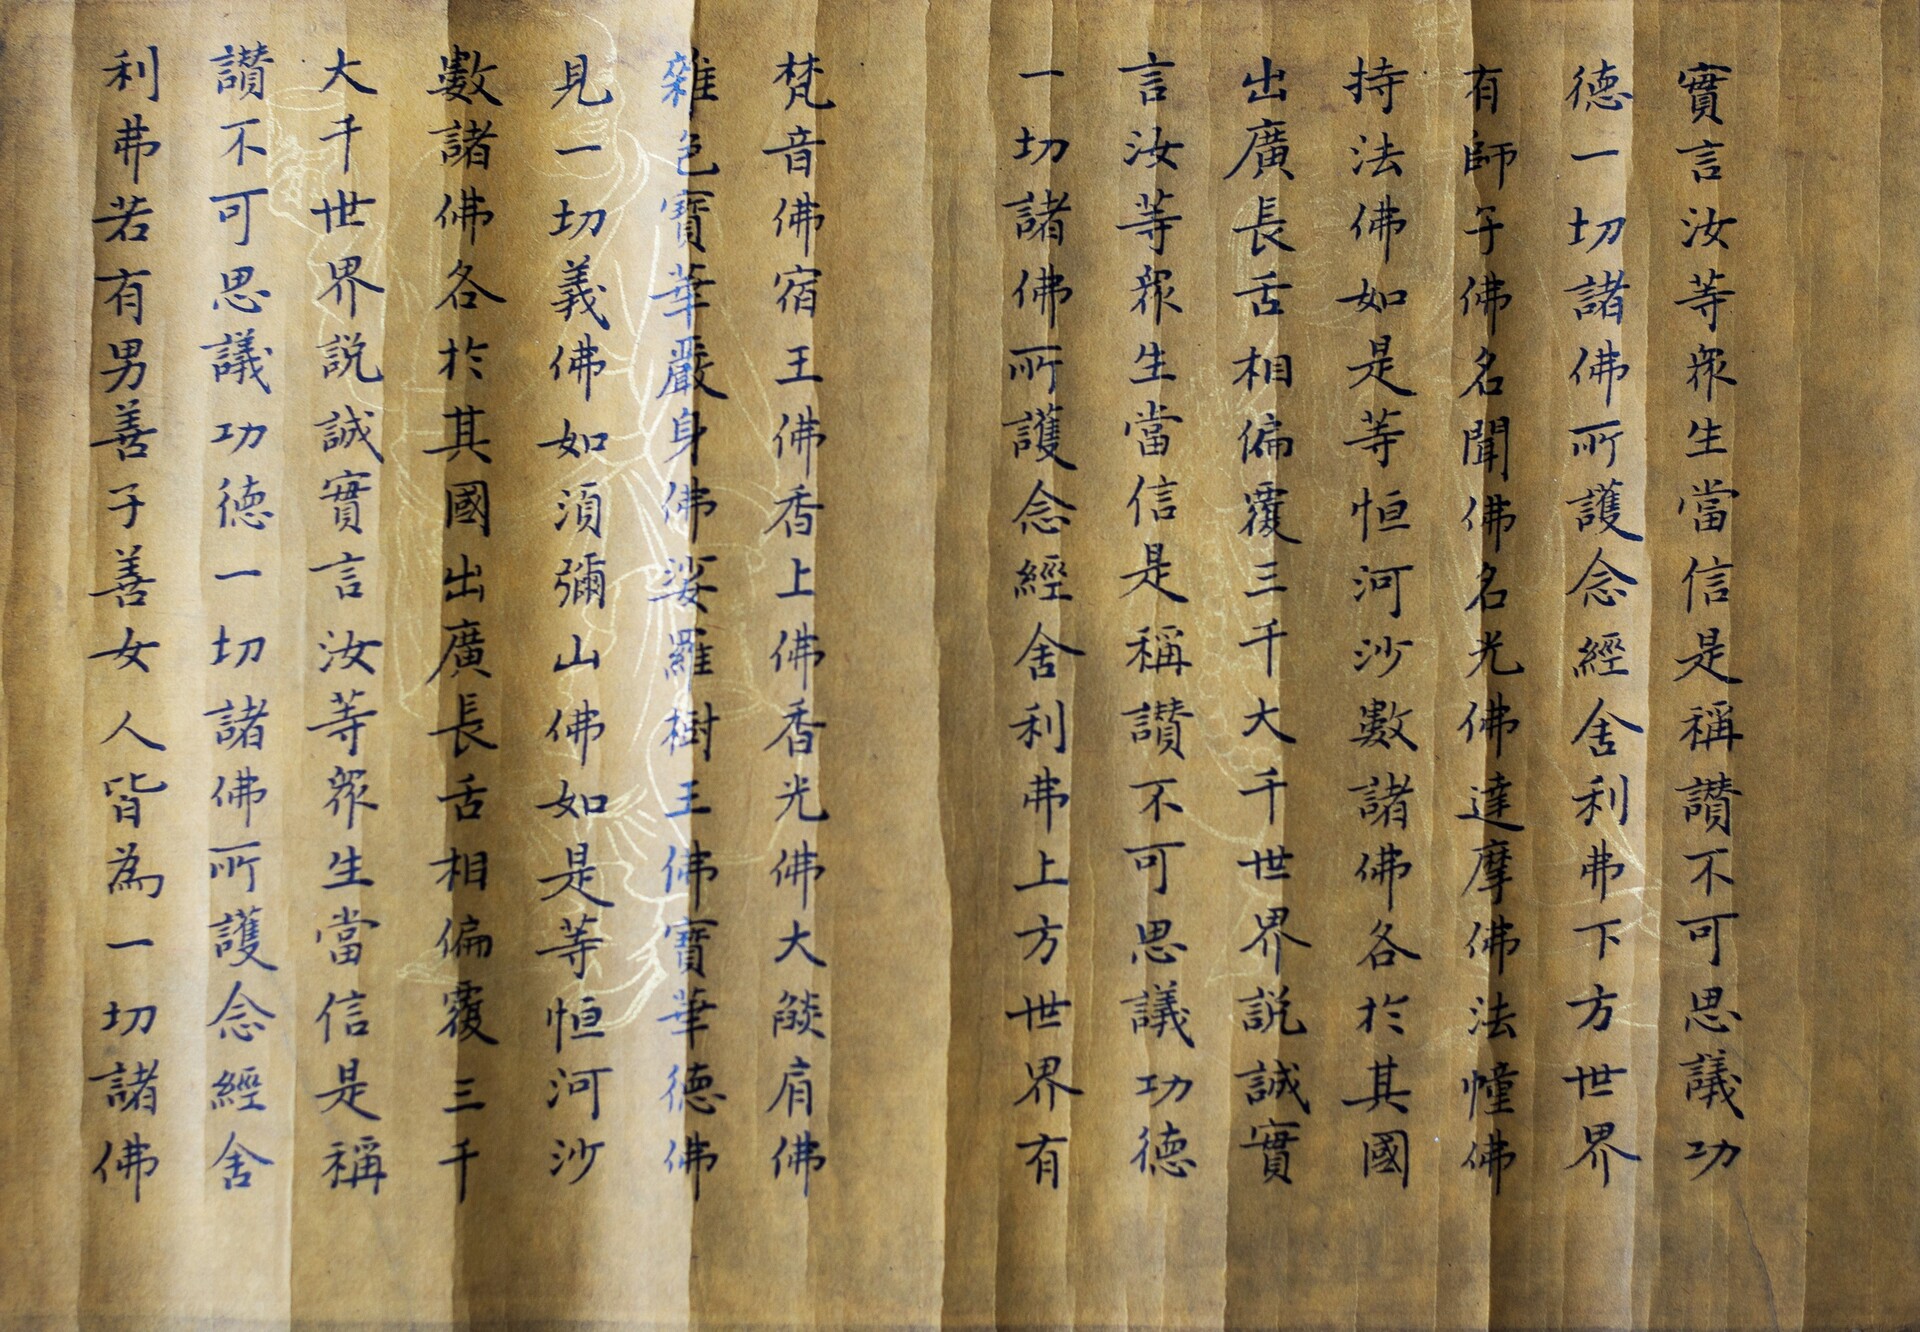 實言汝等眾生當信是稱讚不可思議功
德一切諸佛所護念經舍利弗下方世界
有師子佛名聞佛名光佛達摩佛法幢佛
持法佛如是等恒河沙數諸佛各於其國
出廣長舌相偏覆三千大千世界說誠實
言汝等眾生當信是稱讚不可思議功德
一切諸佛所護念經舍利弗上方世界有
梵音佛宿王佛香上佛香光佛大燄肩佛
雜色寶華嚴身佛娑羅樹王佛寶華德佛
見一切義佛如須彌山佛如是等恒河沙
數諸佛各於其國出廣長舌相偏覆三千
大千世界說誠實言汝等眾生當信是稱
讚不可思議功德一切諸佛所護念經舍
利弗若有男善子善女人皆為一切諸佛